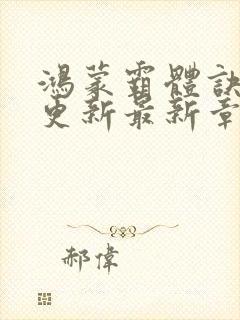 鴻蒙霸體訣
更新最新章
郝偉